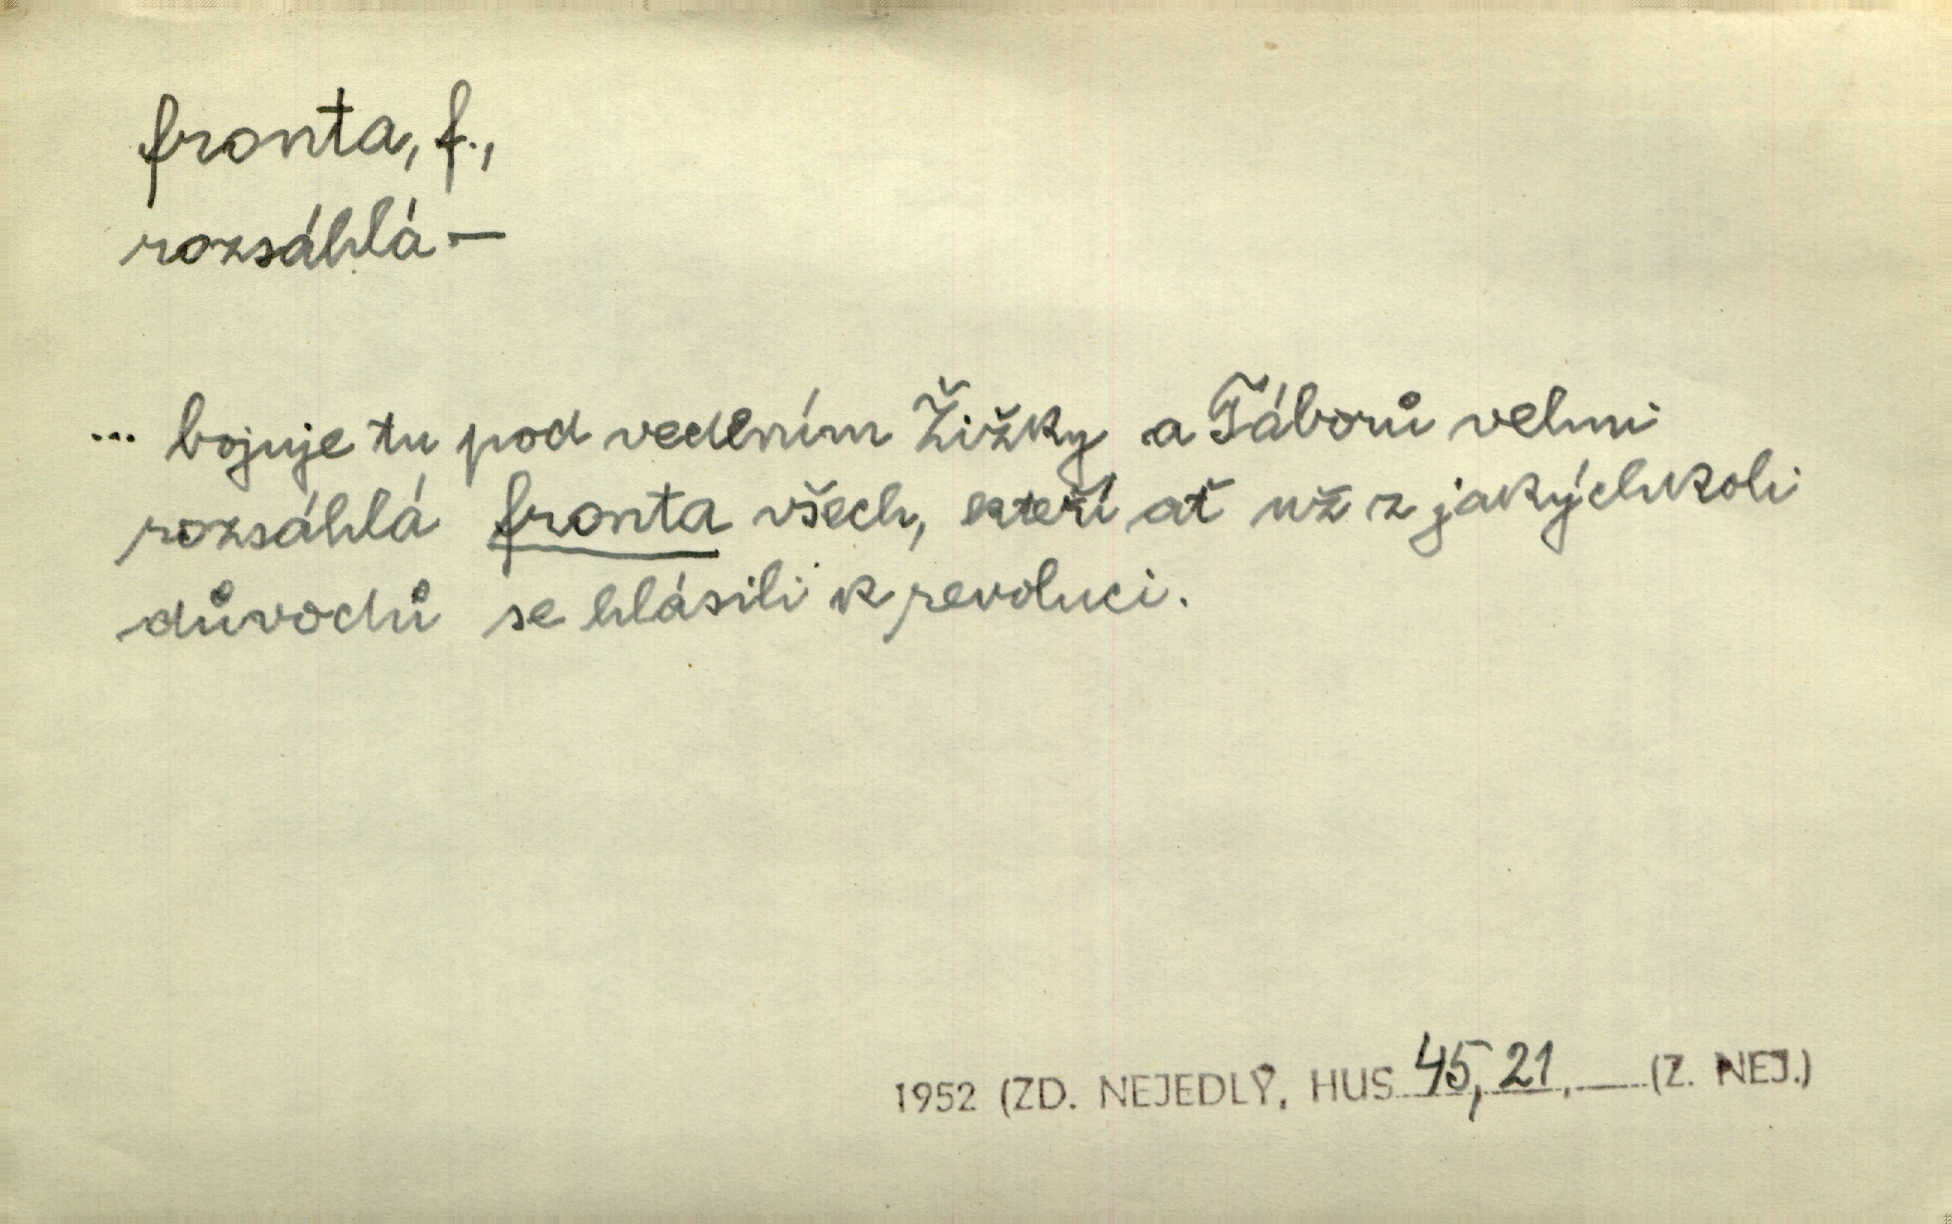 fronta, f.,
rozsáhlá —
... bojuje tu pod vedením Žižky a Táborů velmi
rozsáhlá fronta všech, kteří ať už z jakýchkoli
důvodů se hlásili k revoluci.
1952 (ZD. NEJEDLÝ, HUS 45, 21, — (Z. NEJ.)